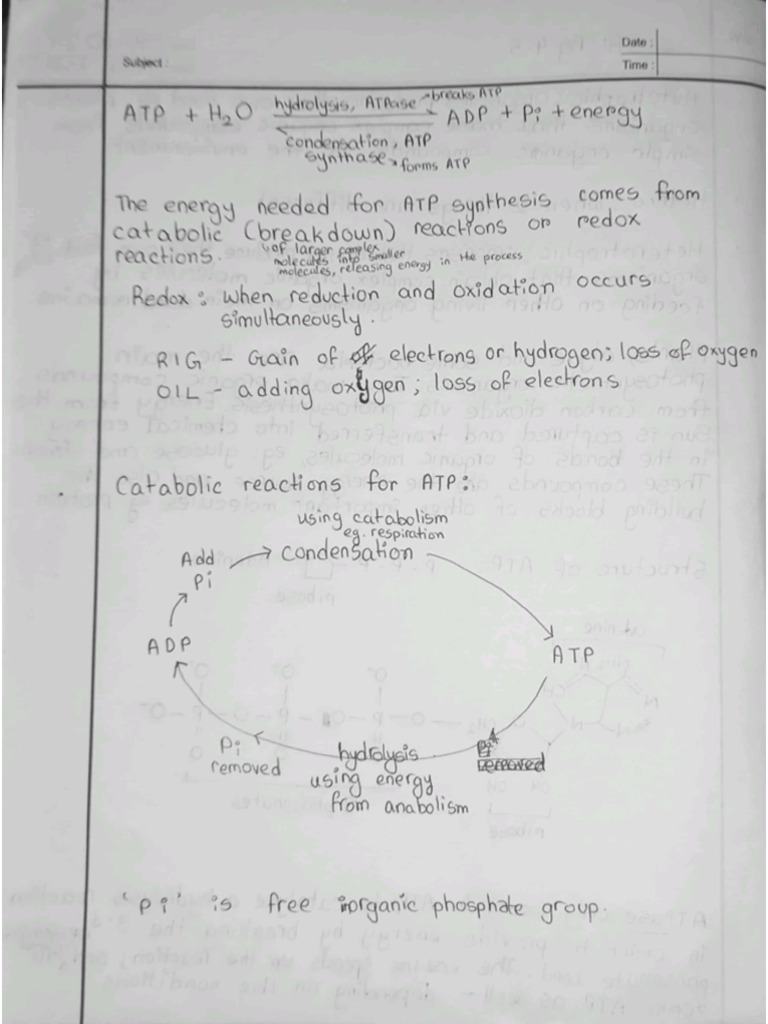 Date :
Subject :
Time :
hydrolysis, ATPase → breaks ATP
ATP + H₂O ⇌ ADP + Pi + energy
condensation, ATP
synthase → forms ATP
The energy needed for ATP synthesis comes from
catabolic (breakdown) reactions or redox
reactions.
↳ of larger complex
molecules into smaller
molecules, releasing energy in the process
Redox : when reduction and oxidation occurs
simultaneously.
RIG – Gain of electrons or hydrogen; loss of oxygen
OIL – adding oxygen ; loss of electrons
Catabolic reactions for ATP:
using catabolism
eg. respiration
Add
Pi
condensation
ADP
ATP
Pi
removed
hydrolysis
using energy
from anabolism
'Pi' is free inorganic phosphate group.